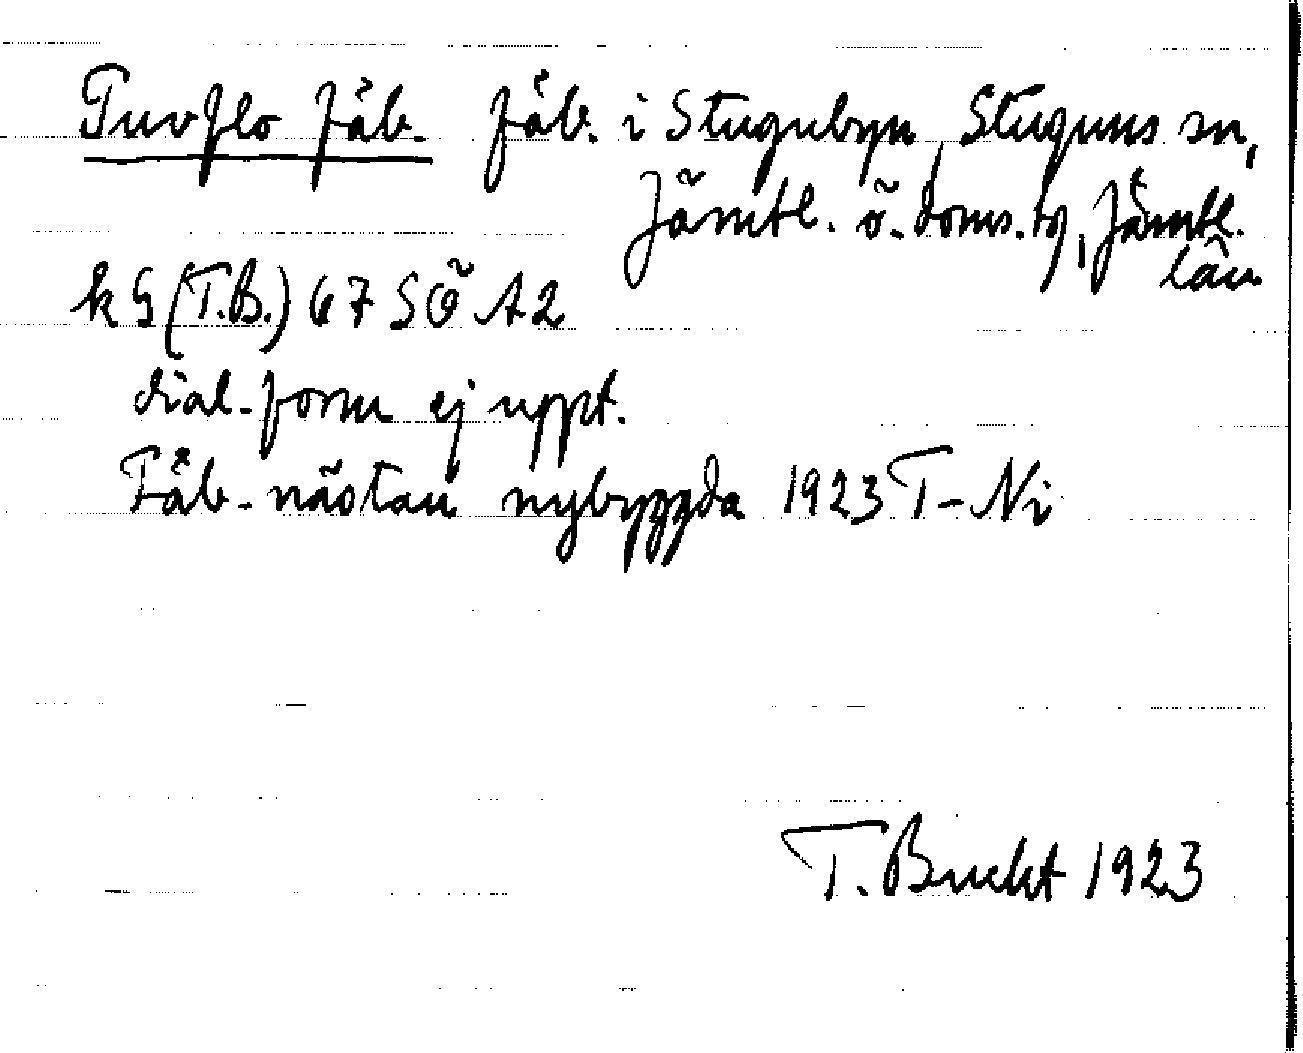 Tuvflo fäb. fäb. i Stugubyn, Stuguns sn,
Jämtl. ö. doms. tg, Jämtl.
län
k G (T.B.) 67 SÖ A2
dial. form ej uppt.
Fäb. nästan nybyggda 1923 T-Ni
T. Bucht 1923